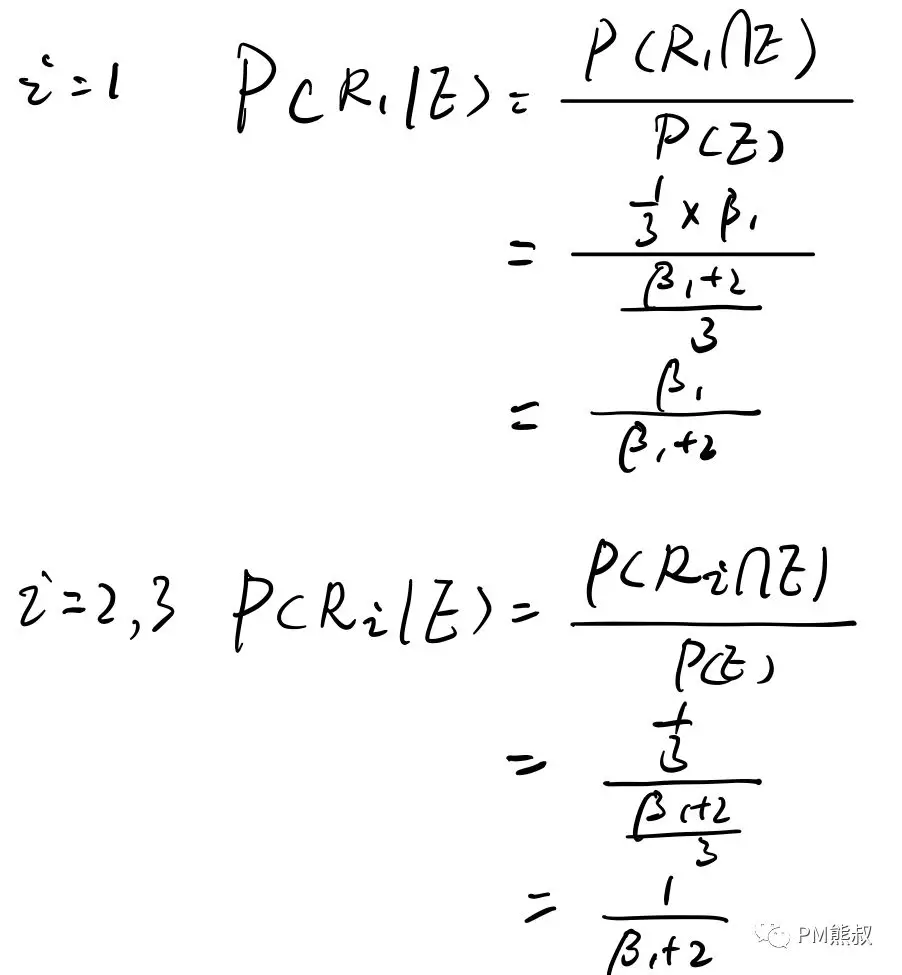 i=1 P(R₁|E) = P(R₁∩E) / P(E)
= (1/3 × β₁) / ((β₁+2)/3)
= β₁ / (β₁+2)
i=2,3 P(Rᵢ|E) = P(Rᵢ∩E) / P(E)
= (1/3) / ((β₁+2)/3)
= 1 / (β₁+2)
PM熊叔